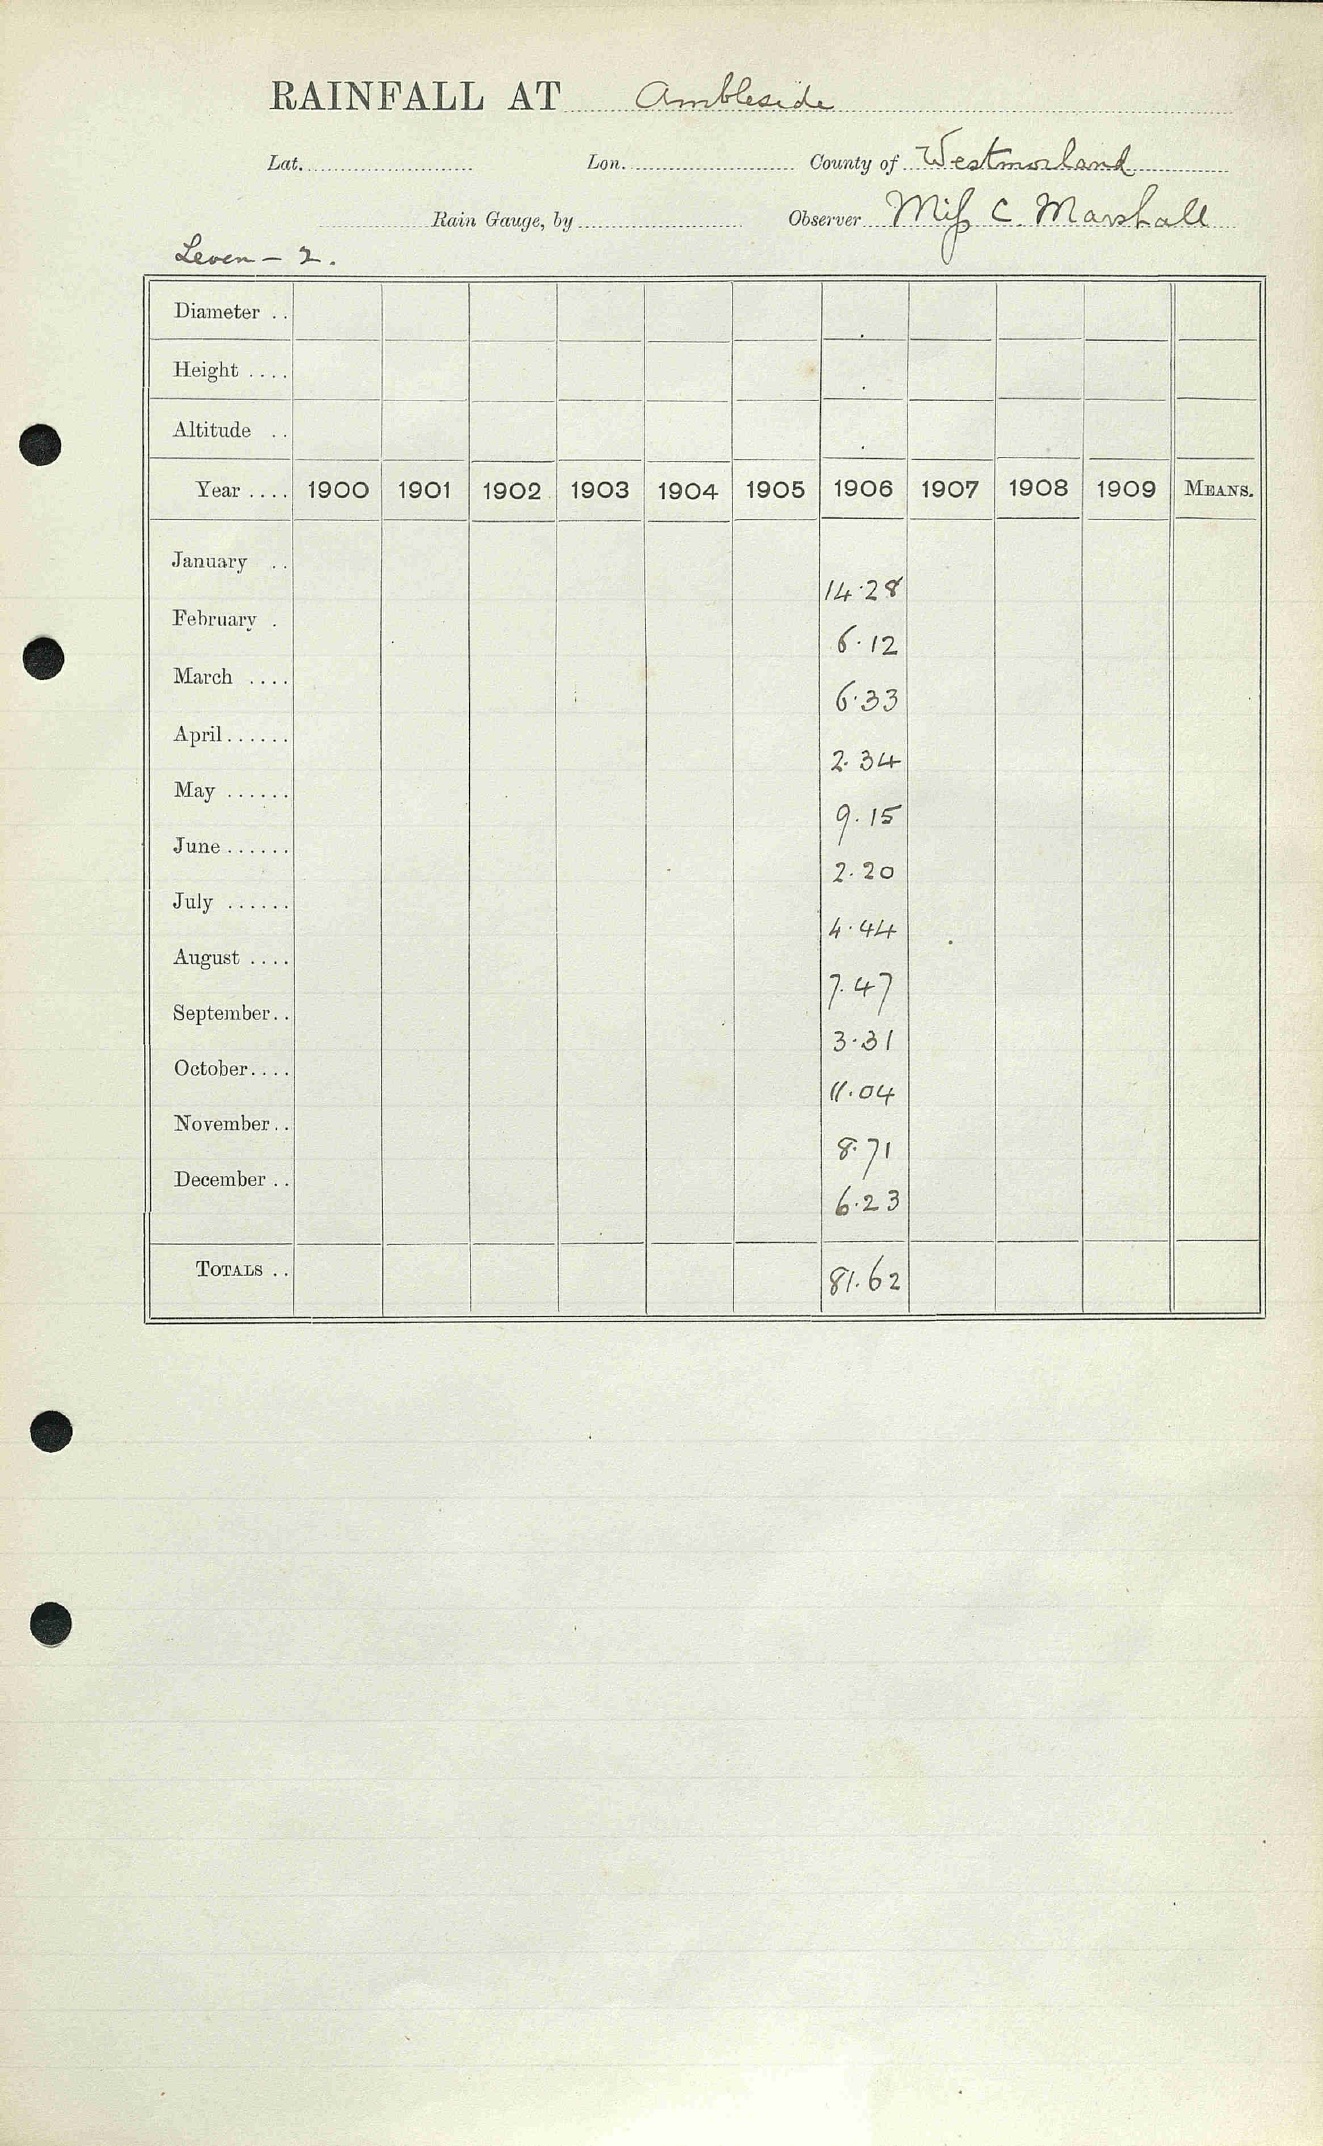 RAINFALL AT Ambleside
Lat. Lon. County of Westmorland
Rain Gauge, by Observer Miſs C. Marshall
Leven - 2.
Diameter ..
Height ....
Altitude ..
Year .... 1900 1901 1902 1903 1904 1905 1906 1907 1908 1909 MEANS.
January .. 14.28
February . 6.12
March .... 6.33
April ...... 2.34
May ...... 9.15
June ...... 2.20
July ...... 4.44
August .... 7.47
September .. 3.31
October .... 11.04
November .. 8.71
December .. 6.23
TOTALS .. 81.62